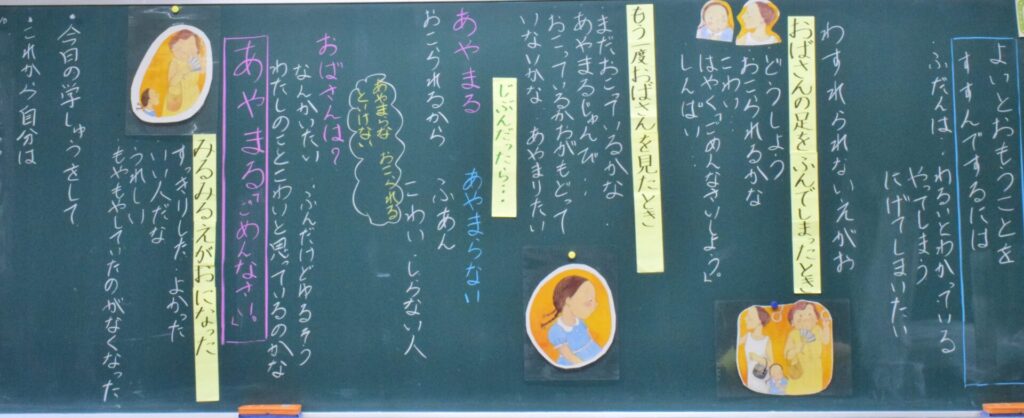 よいとおもうことを
すすんでするには
ふだんは
わるいとわかっている
やってしまう
にげてしまいたい
わすれられないえがお
おばさんの足をふんでしまったとき
どうしよう
おこられるかな
こわい
はやく「ごめんなさいしよう」
しんぱい
もう一度おばさんを見たとき
まだおこってるかな
あやまるじゅんび
おこっているかおがもどって
いないかな あやまりたい
じぶんだったら・・・
あやまる
おこられるから
あやまらない
ふあん
こわい・しらない人
あやまらな
といけない
おこられる
おばさんは?
なんかいたい
・ふんだけどゆるそう
わたしのことこわいと思っているのかな
あやまる「ごめんなさい。」
みるみるえがおになった
すっきりした・よかった
いい人だな
うれしい
もやもやしていたのがなくなった
・今日の学しゅうをして
・これから自分は